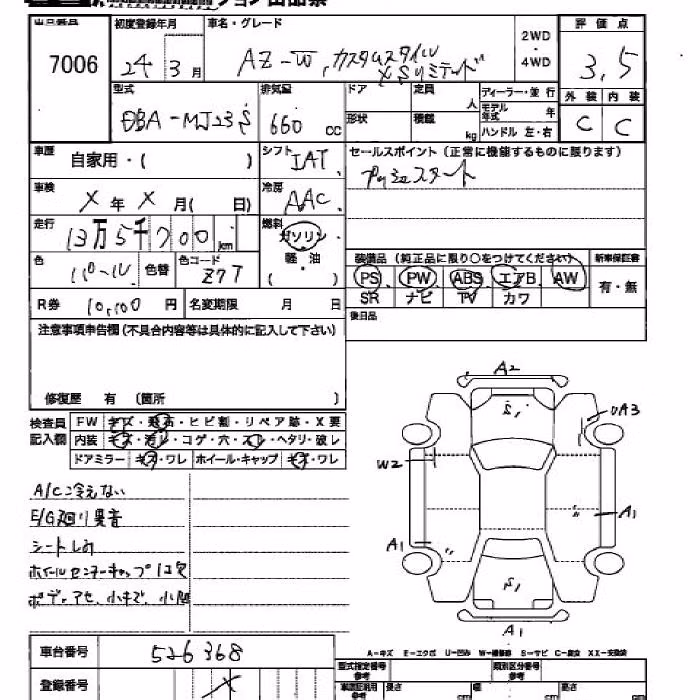 出品票
出品番号 初度登録年月 車名・グレード 2WD・4WD 評価点
7006 24年3月 AZ-W, カスタムスタイル XSリミテッド 3,5
型式 排気量 ドア 定員 人 ディーラー・並行 外装 内装
DBA-MJ23S 660 cc 形状 積載 kg モデル年式 年 ハンドル 左・右 C C
車歴 自家用・( ) シフト IAT セールスポイント(正常に機能するものに限ります)
プッシュスタート
車検 X年X月( 日) 冷房 AAC
走行 13万5千700km 燃料 ガソリン 軽・油 ( )
色 パール 色替 色コード Z7T 装備品(純正品に限り○をつけてください) 新車保証書
PS PW ABS エアB AW 有・無
SR ナビ TV カワ
R券 10,100円 名変期限 月 日 後日品
注意事項申告欄(不具合内容等は具体的に記入して下さい)
修復歴 有 〔箇所 〕
検査員記入欄 FW キズ・飛石・ヒビ割・リペア跡・X要
内装 キズ・汚レ・コゲ・穴・スレ・ヘタリ・破レ
ドアミラー キズ・ワレ ホイール・キャップ キズ・ワレ
A/C冷えない
E/G廻り異音
シートしみ
ホイールセンターキャップ1ケ欠
ボディアセ、小キズ、小凹
A2
S1
UA3
W2
A1
A1
S1
A1
A-キズ E-エクボ U-凹み W-補修跡 S-サビ C-腐食 XX-交換済
車台番号 526368
型式指定番号 参考 類別区分番号 参考
登録番号 X
車証記載用 参考 長さ cm 幅 cm 高さ cm